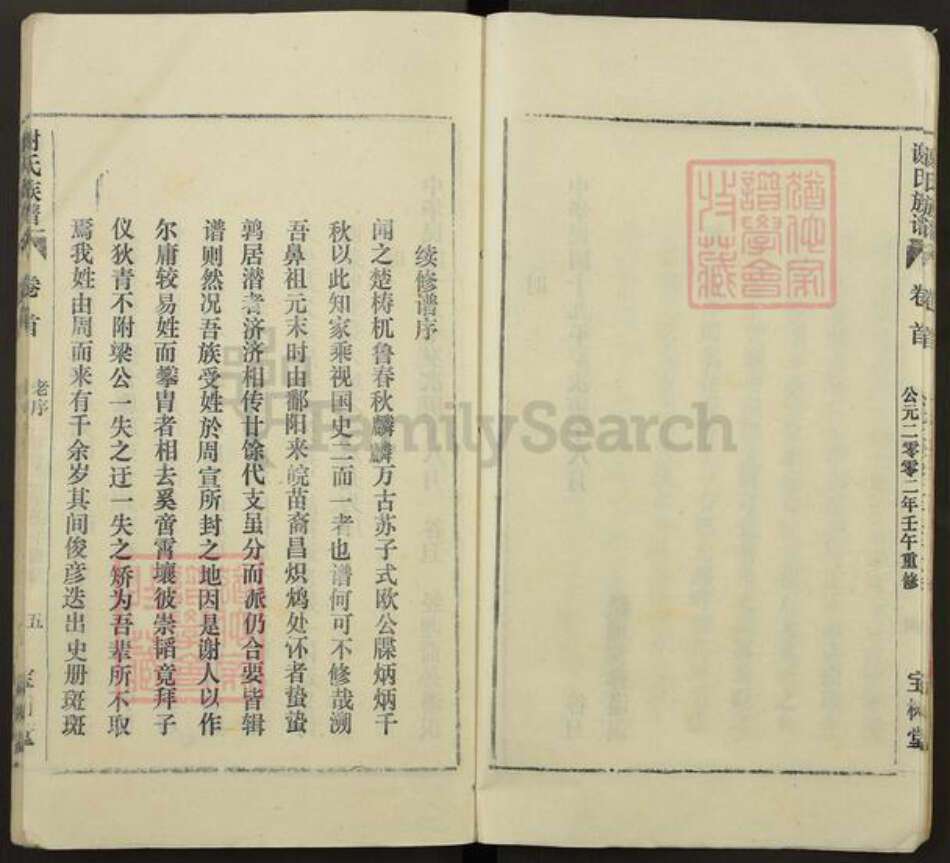 谢氏族谱
卷首
公元二零零二年壬午重修
宝树堂
续修谱序
闻之楚梼杌鲁春秋麟麟万古苏子式欧公牒炳炳千
秋以此知家乘视国史二而一者也谱何可不修哉溯
吾鼻祖元末时由鄱阳来皖苗裔昌炽鸠处怀者蛰蛰
鹑居潜者济济相传廿馀代支虽分而派仍合要皆辑
谱则然况吾族受姓於周宣所封之地因是谢人以作
尔庸较易姓而攀胄者相去奚啻霄壤彼崇韬竟拜子
仪狄青不附梁公一失之迂一失之矫为吾辈所不取
焉我姓由周而来有千余岁其间俊彦迭出史册斑斑
谢氏族谱
卷首
老序
五
FamilySearch